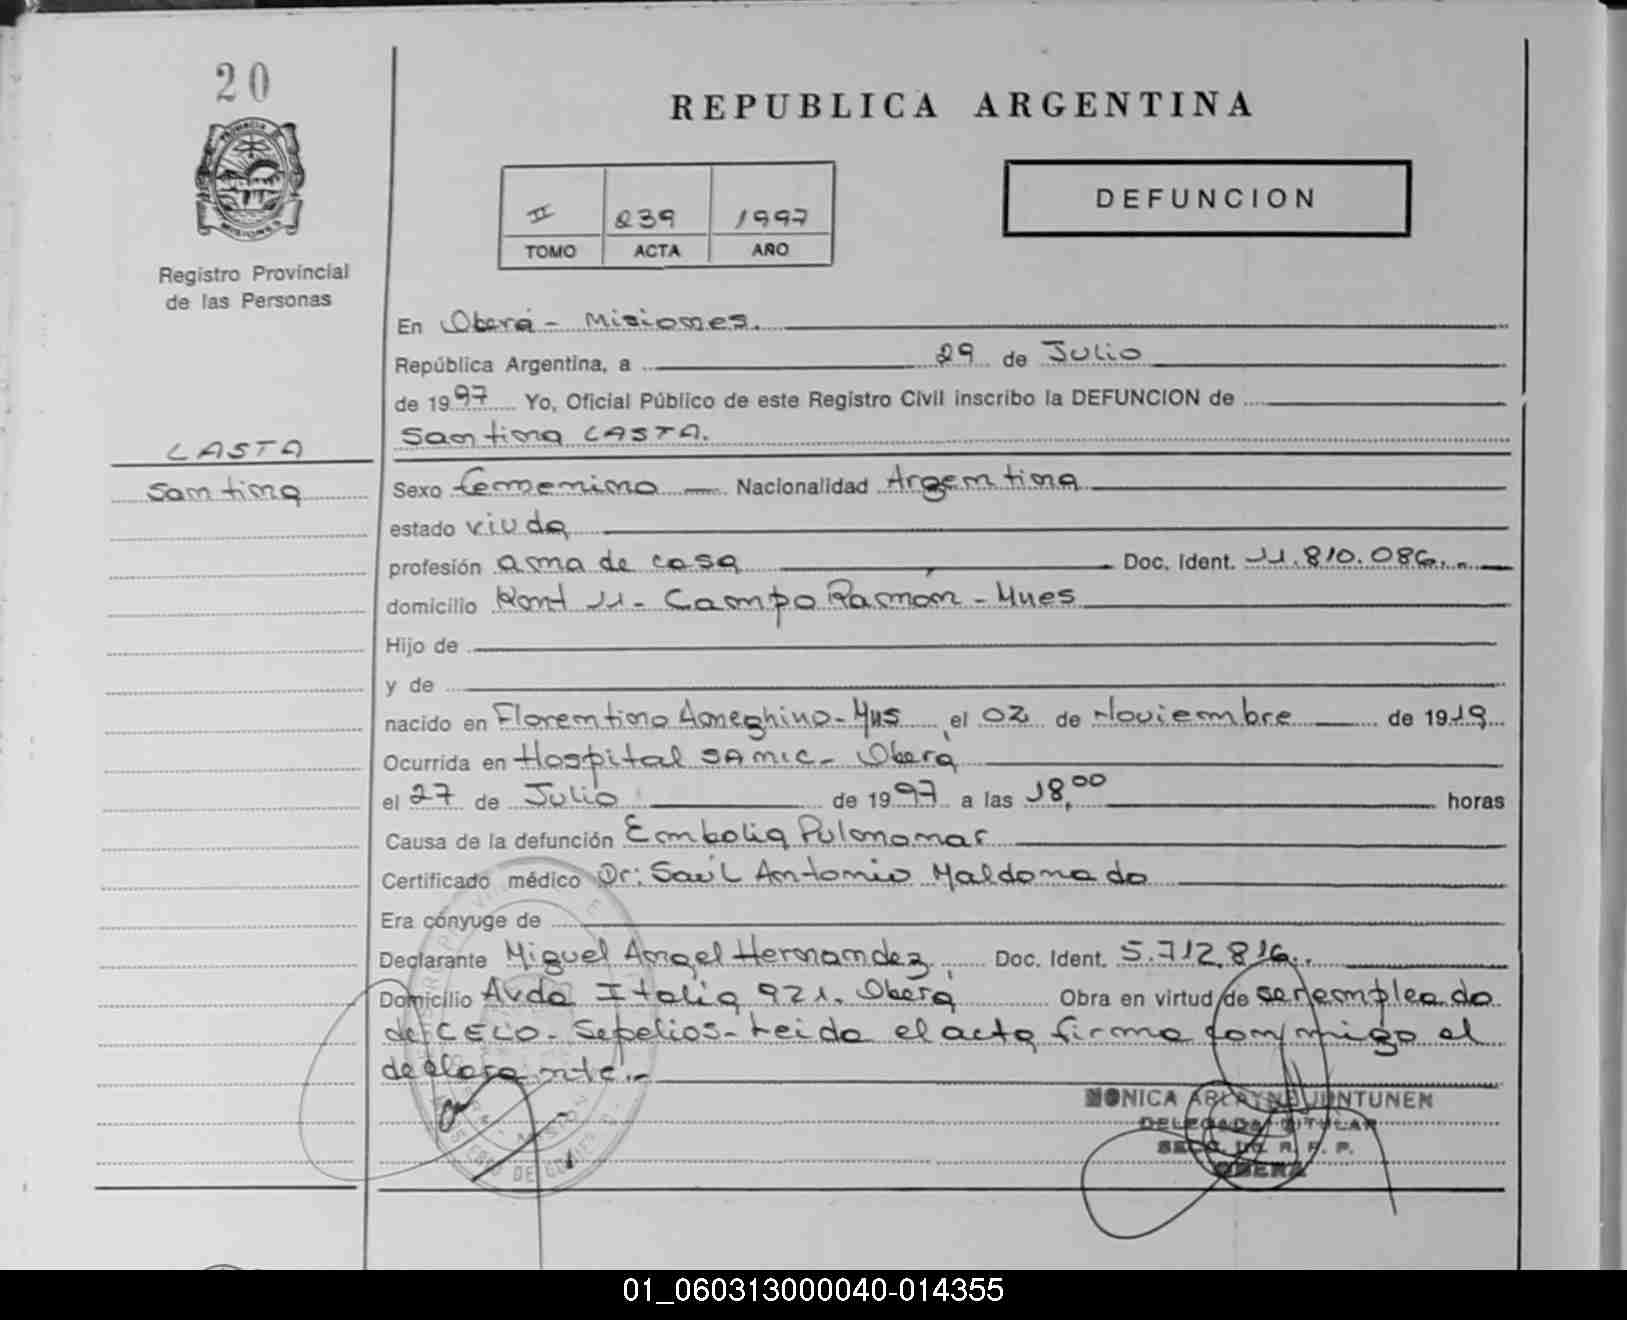 20
REPUBLICA ARGENTINA
II 239 1997
TOMO ACTA AÑO
DEFUNCION
Registro Provincial
de las Personas
En Oberá - Misiones.
República Argentina, a 29 de Julio
de 1997 Yo, Oficial Público de este Registro Civil inscribo la DEFUNCION de
Santina CASTA.
CASTA
Santina
Sexo femenino Nacionalidad Argentina
estado viuda
profesión ama de casa Doc. Ident. 11.810.086.
domicilio 11 - Campo Ramón - Mnes
Hijo de
y de
nacido en Florentino Ameghino - Mns el 02 de Noviembre de 1919
Ocurrida en Hospital SAMIC - Oberá
el 27 de Julio de 1997 a las 18,00 horas
Causa de la defunción Embolia Pulmonar
Certificado médico Dr: Saúl Antonio Maldonado
Era cónyuge de
Declarante Miguel Angel Hernandez, Doc. Ident. 5.712.816.
Domicilio Avda Italia 921. Oberá Obra en virtud de ser empleado
de CELO - Sepelios - Leida el acta firma conmigo el
declarante.-
MONICA
DELEGADA TITULAR
SECC. R. P. P.
OBERA
01_060313000040-014355